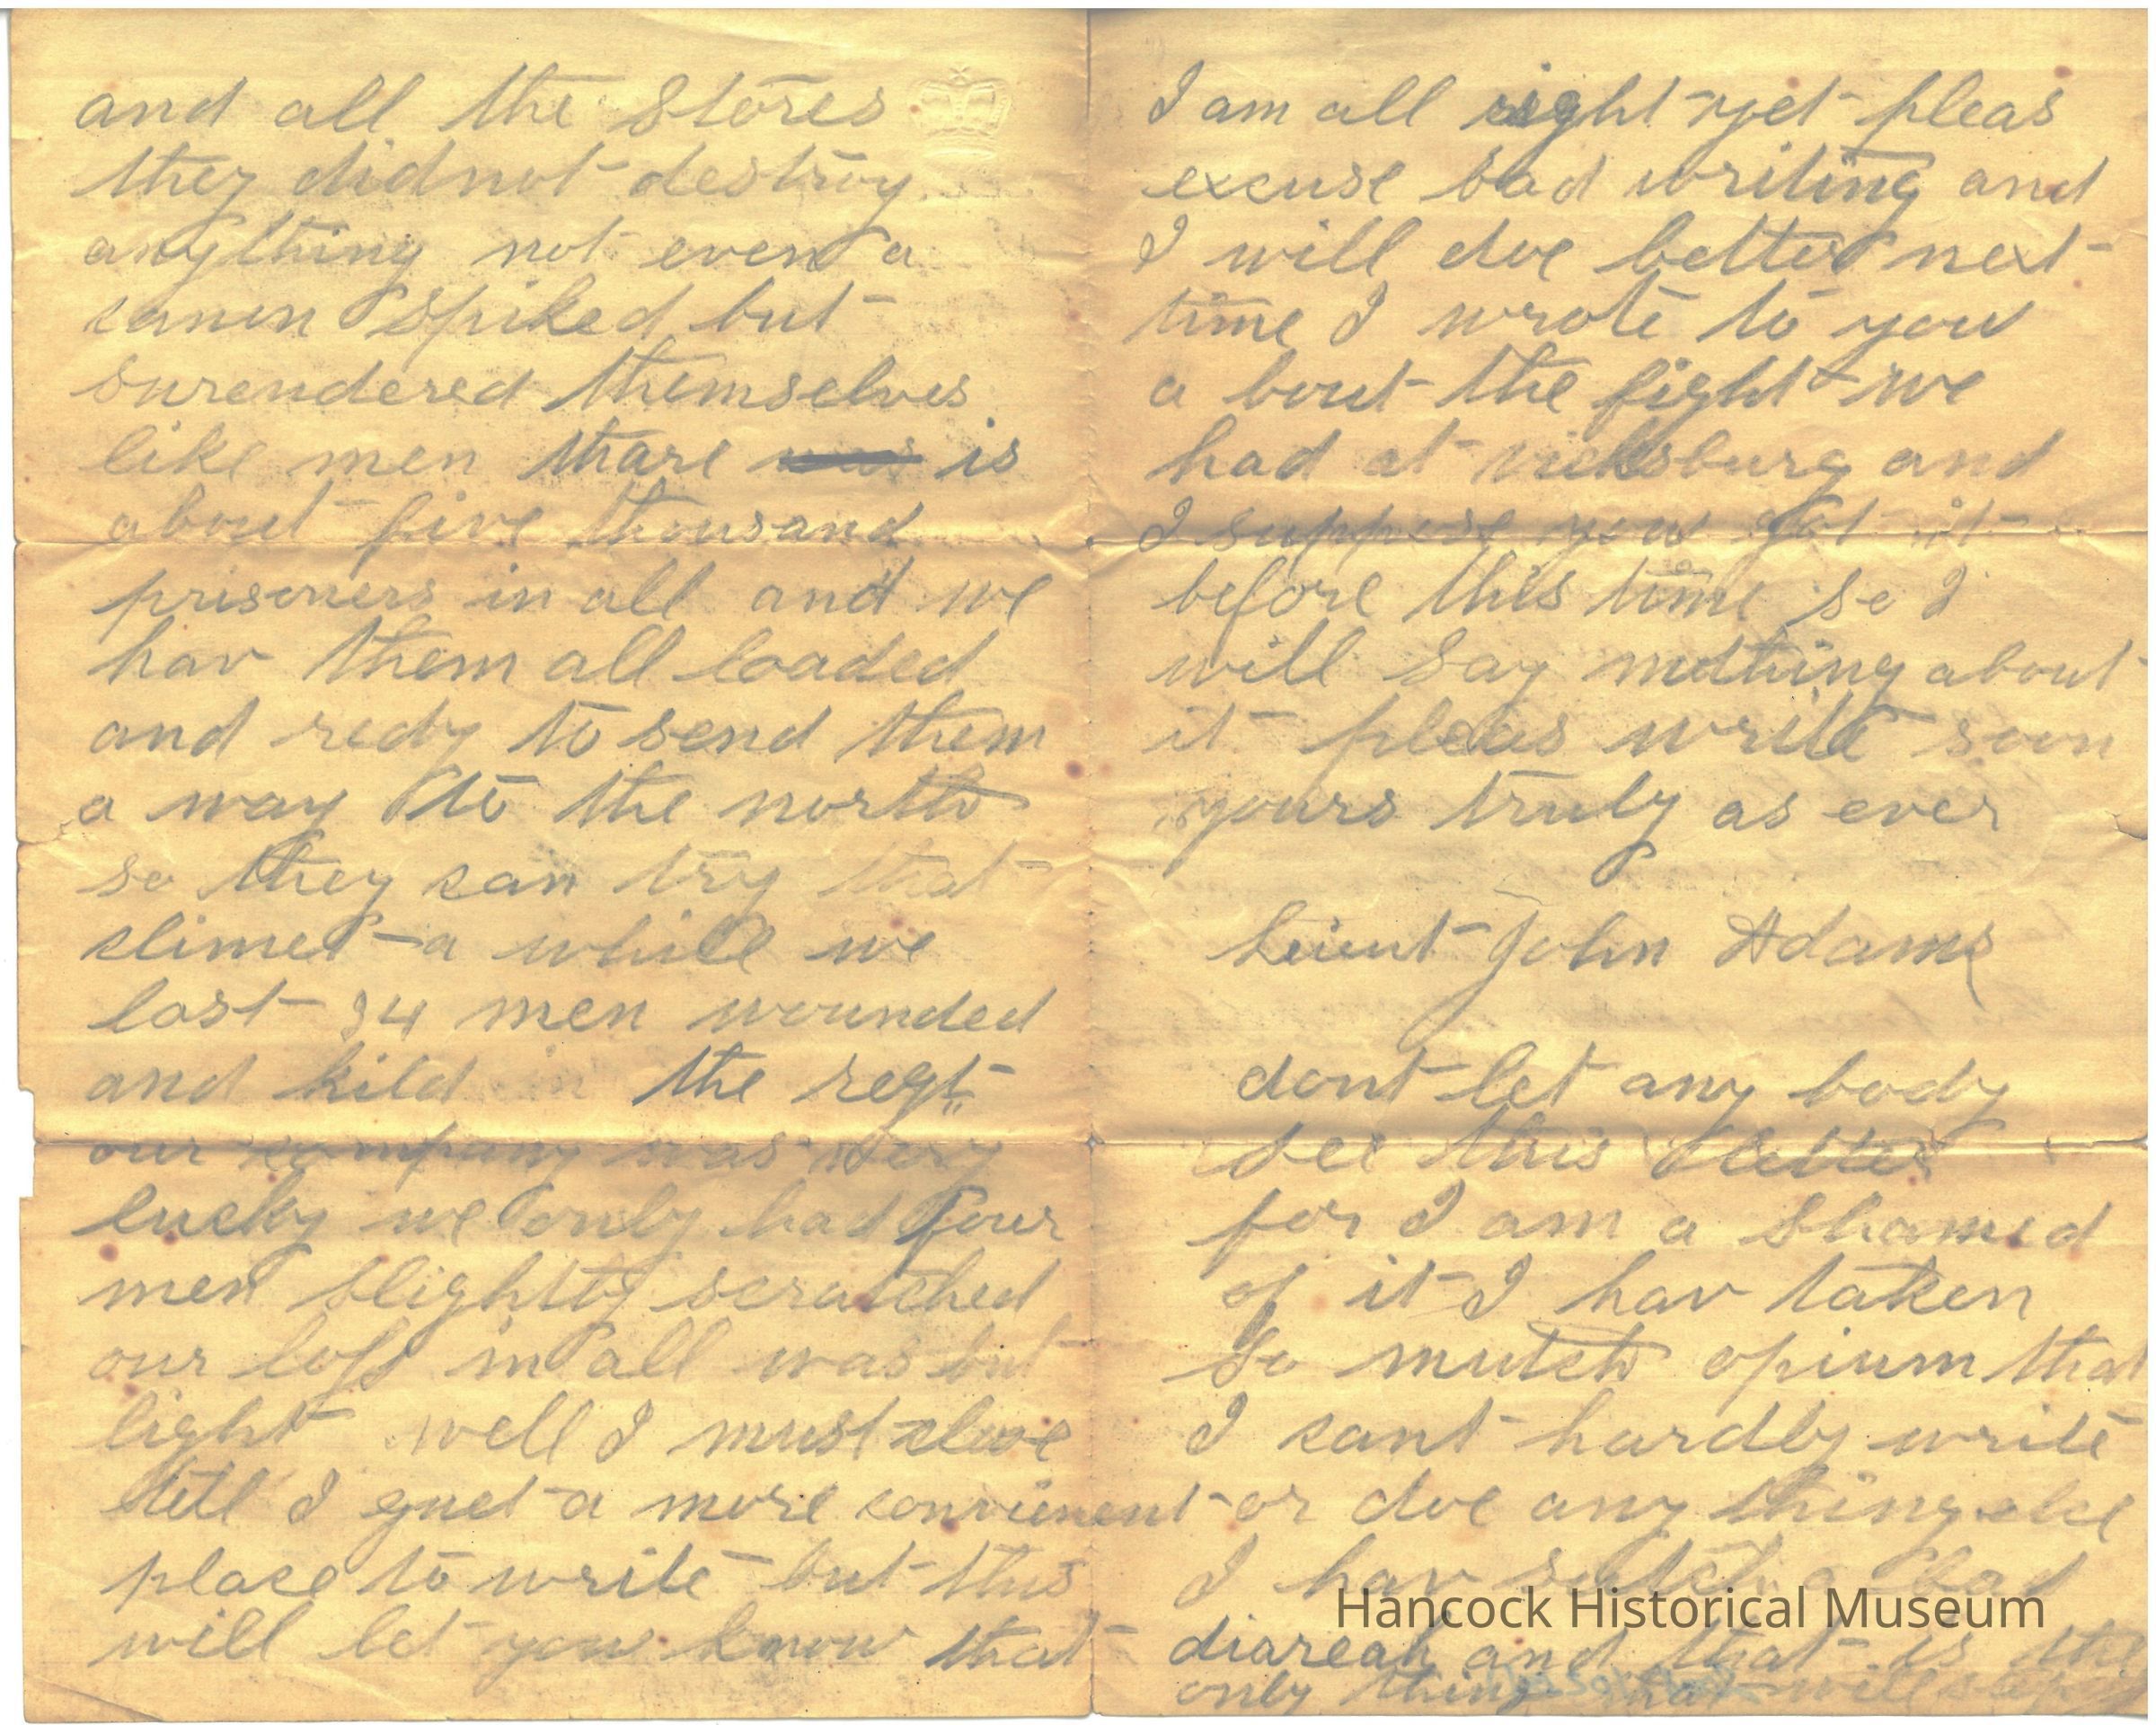 and all the Stores
they didnot destroy
anything not even a
canon Spiked but
surendered themselves
like men thare was is
about five thousand
prisoners in all and we
hav them all loaded
and redy to send them
a way to the north
so they can try that
climet a while we
lost 34 men wounded
and kild in the regt
our company was very
lucky we only had four
men slightty scratched
our loss in all was but
light well I must close
till I guet a more convienent
place to write but this
will let you know that
I am all right yet pleas
excuse bad writing and
I will doe better next
time I wrote to you
a bout the fight we
had at vicksburg and
I suppose you got it
before this time so I
will Say nothing about
it pleas write soon
yours truly as ever
Leiut John Adams
dont let any body
See this letter
for I am a shamed
of it I hav taken
So mutch opium that
I cant hardly write
or doe any thing else
I hav sutch a bad
diareah and that is the
only thing that will stop it
Hancock Historical Museum